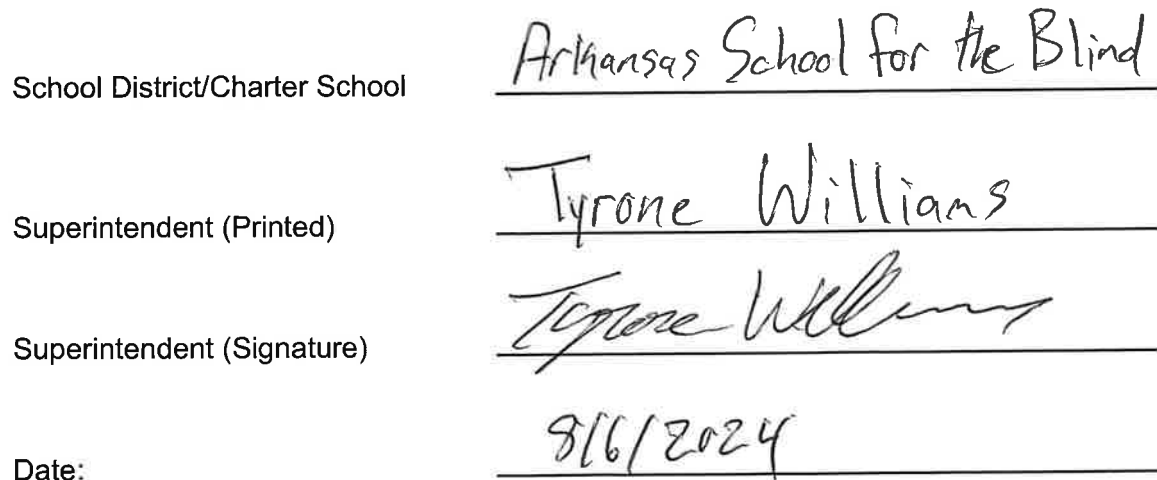 School District/Charter School Arkansas School for the Blind
Superintendent (Printed) Tyrone Williams
Superintendent (Signature) Tyrone Williams
Date: 8/6/2024